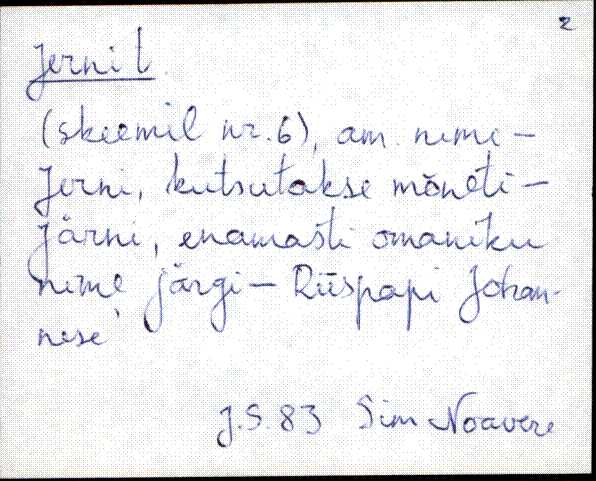 2
Jerni t
(skeemil nr. 6), am. nimi -
Jerni, kutsutakse mõnéti -
Järni, enamašti omaniku
nime järgi - Riispapi Johan-
nese
J.S. 83 Sim Noavere